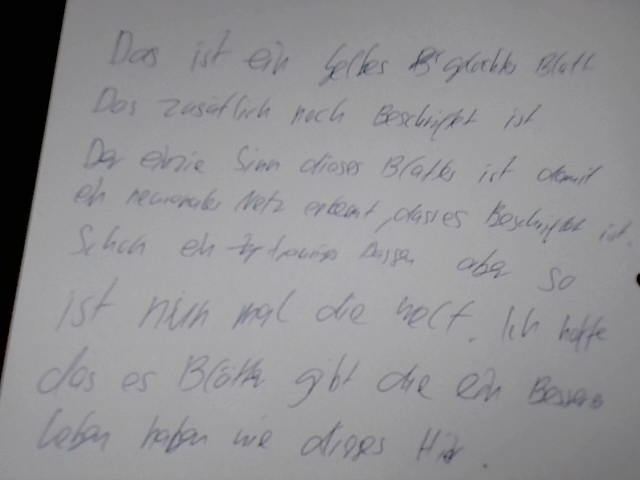 Das ist ein gelbes Blatt
Das zusätlich noch Beschriftet ist
Der einzie Sinn dieses Blattes ist damit
ein neuronales Netz erkennt, dass es Beschriftet ist.
Schon ein trauriges Dassen aber so
ist nun mal die welt. Ich hoffe
das es Blätter gibt die ein Besseres
Leben haben wie dieses Hir.